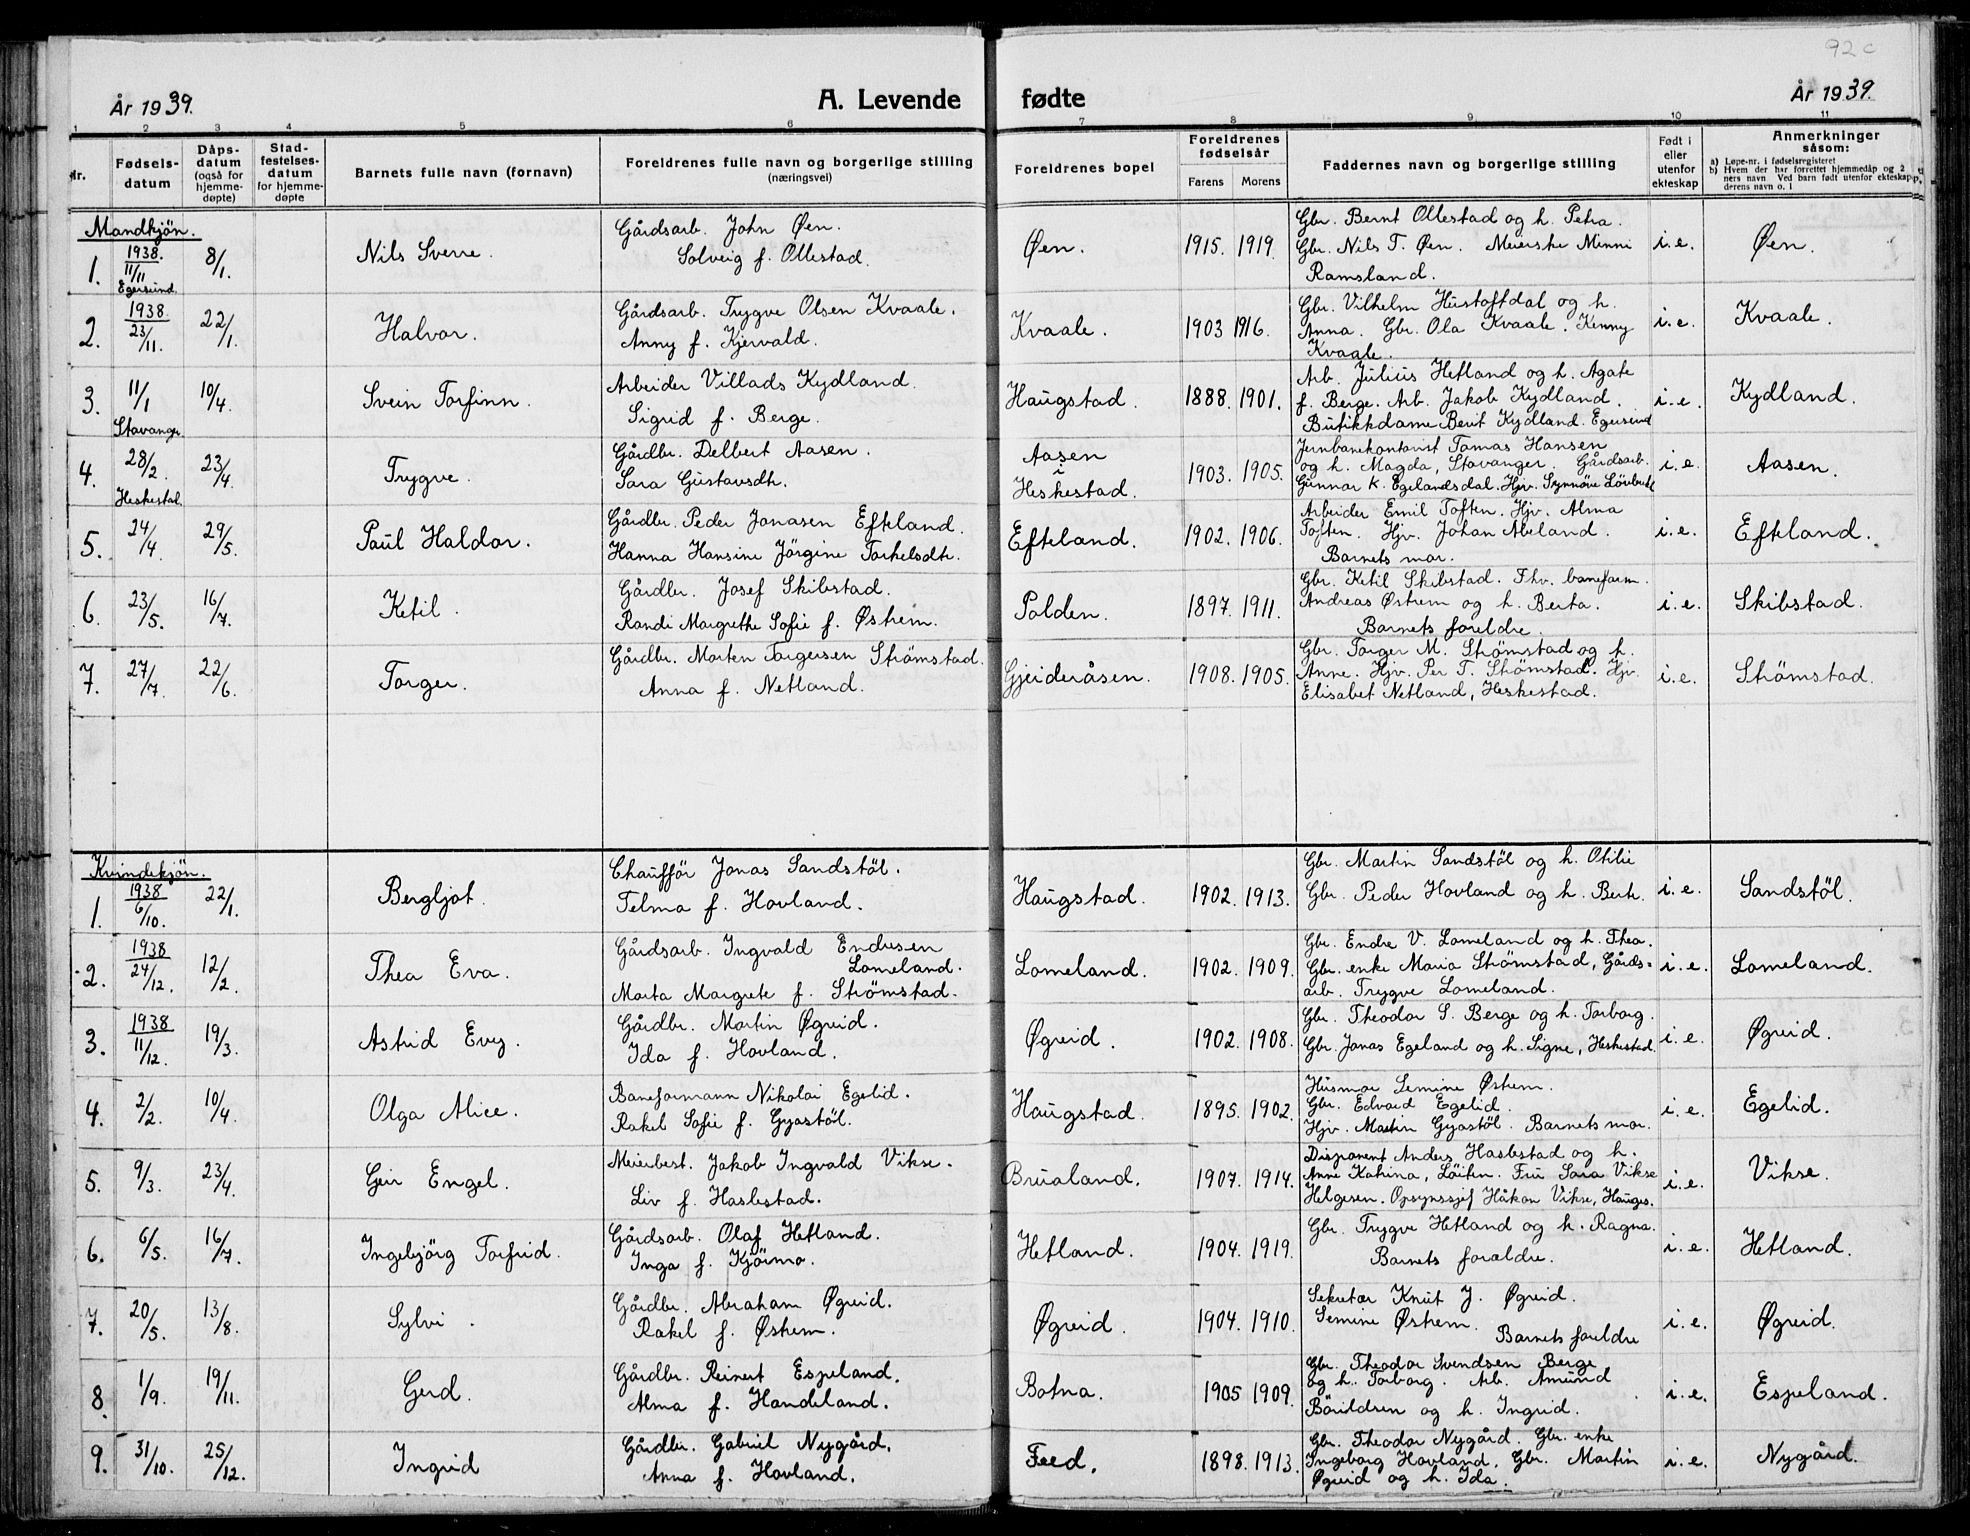 92 c
År 1939.
A. Levende fødte
År 1939.
1 2 3 4 5 6 7 8 9 10 11
Nr.
Fødsels-
datum
Dåps-
datum
(også for
hjemme-
døpte)
Stad-
festelses-
datum
for hjemme-
døpte
Barnets fulle navn (fornavn)
Foreldrenes fulle navn og borgerlige stilling
(næringsvei)
Foreldrenes bopel
Foreldrenes
fødselsår
Farens Morens
Faddernes navn og borgerlige stilling
Født i
eller
utenfor
ekteskap
Anmerkninger
såsom:
a) Løpe-nr. i fødselsregisteret
b) Hvem der har forrettet hjemmedåp og 2
ners navn Ved barn født utenfor ekteskap
derens navn o. l
Mandkjön.
1.
1938.
11/11
Egersund.
8/1.
Nils Sverre.
Gårdsarb. John Øen.
Solveig f. Ollestad.
Øen.
1915. 1919.
Gbr. Bernt Ollestad og h. Petra.
Gbr. Nils T. Øen. Meierske Minni
Ramsland.
i.e.
Øen.
2.
1938.
23/11.
22/1.
Halvor.
Gårdsarb. Trygve Olsen Kvaale.
Anny f. Kjervald.
Kvaale.
1903 1916.
Gbr. Vilhelm Hustoftdal og h.
Anna. Gbr. Ola Kvaale. Kenny
Kvaale.
i.e.
Kvaale.
3.
11/1
Stavanger
10/4.
Svein Torfinn.
Arbeider Villads Kydland.
Sigrid f. Berge.
Haugstad.
1888. 1901.
Arb. Julius Hetland og h. Agate
f. Berge. Arb. Jakob Kydland.
Butikkdame Berit Kydland. Egersund
i.e.
Kydland.
4.
28/2.
Heskestad.
23/4.
Trygve.
Gårdbr. Delbert Aasen.
Sara Gustavsdtr.
Aasen
i
Heskestad.
1903. 1905.
Jernbanekontorist Tomas Hansen
og h. Magda, Stavanger. Gårdsarb.
Gunnar K. Egelandsdal. Hjv. Synnöve
i.e.
Aasen.
5.
24/4.
29/5.
Paul Haldor.
Gårdbr. Peder Jonasen Efteland.
Hanna Hansine Jörgine Torkelsdtr.
Efteland.
1902. 1906.
Arbeider Emil Toften. Hjv. Alma
Toften. Hjv. Johan Abeland.
Barnets mor.
i.e.
Efteland.
6.
23/5.
16/7.
Ketil.
Gårdbr. Josef Skibstad.
Randi Margrethe Sofie f. Østrem.
Polden.
1897. 1911.
Gbr. Ketil Skibstad. Fhv. baneform.
Andreas Østrem og h. Berta.
Barnets foreldre.
i.e.
Skibstad.
7.
27/7.
22/6.
Torger.
Gårdbr. Morten Torgersen Strömstad.
Anna f. Netland.
Gjeideråsen.
1908. 1905.
Gbr. Torger M. Strömstad og h.
Anne. Hjv. Per T. Strömstad. Hjv.
Elisabet Netland, Heskestad.
i.e.
Strömstad.
Kvindekjön.
1.
1938
6/10.
22/1.
Bergljot.
Chaufför Jonas Sandstöl.
Telma f. Hovland.
Haugstad.
1902. 1913.
Gbr. Martin Sandstöl og h. Otilie
Gbr. Peder Hovland og h. Berte.
i.e.
Sandstöl.
2.
1938
24/12.
12/2.
Thea Eva.
Gårdsarb. Ingvald Endresen
Lomeland.
Marta Margrete f. Strömstad.
Lomeland.
1902. 1909.
Gbr. Endre V. Lomeland og h. Thea.
Gbr. enke Maria Strömstad, Gårds-
arb. Trygve Lomeland.
i.e.
Lomeland.
3.
1938
11/12.
19/3.
Astrid Evy.
Gårdbr. Martin Øgreid.
Ida f. Hovland.
Øgreid.
1902. 1908.
Gbr. Theodor S. Berge og h. Torborg.
Gbr. Jonas Egeland og h. Signe, Heskestad.
i.e.
Øgreid.
4.
2/2.
10/4.
Olga Alice.
Baneformann Nikolai Egelid.
Rakel Sofie f. Gyastöl.
Haugstad.
1895. 1902.
Husmor Semine Østrem.
Gbr. Edvard Egelid.
Hjv. Martin Gyastöl. Barnets mor.
i.e.
Egelid.
5.
9/3.
23/4.
Geir Engel.
Meieribest. Jakob Ingvald Vikse.
Liv f. Haslestad.
Brualand.
1907. 1914.
Disponent Anders Haslestad og h.
Anne Katrina, Löiten. Fru Sara Vikse
Helgesen. Opsynssjef Håkon Vikse, Hauges.
i.e.
Vikse.
6.
6/5.
16/7.
Ingebjörg Torfrid.
Gårdsarb. Olaf Hetland.
Inga f. Kjörmo.
Hetland.
1904. 1919.
Gbr. Trygve Hetland og h. Ragna.
Barnets foreldre.
i.e.
Hetland.
7.
20/5.
13/8.
Sylvi.
Gårdbr. Abraham Øgreid.
Rakel f. Østrem.
Øgreid.
1904. 1910.
Sekretær Knut J. Øgreid.
Semine Østrem.
Barnets foreldre
i.e.
Øgreid.
8.
1/9.
19/11.
Gerd.
Gårdbr. Reinert Espeland.
Alma f. Handeland.
Botna.
1905 1909.
Gbr. Theodor Svendsen Berge
og h. Torborg. Arb. Amund
Böiildsen og h. Ingrid.
i.e.
Espeland.
9.
31/10.
25/12.
Ingrid
Gårdbr. Gabriel Nygård.
Anna f. Hovland.
Feed.
1898. 1913.
Gbr. Theodor Nygård. Gbr. enke
Ingeborg Hovland, Gbr. Martin
Øgreid og h. Ida.
i.e.
Nygård.